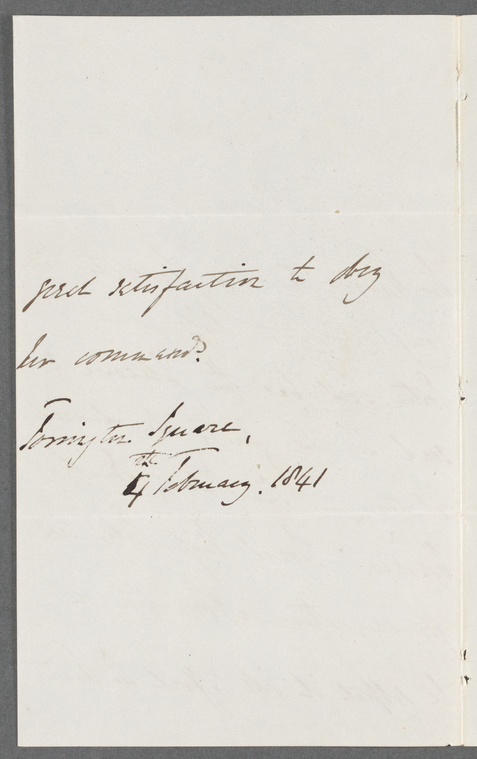 great satisfaction to obey
her commands.
Torrington Square,
4th February. 1841